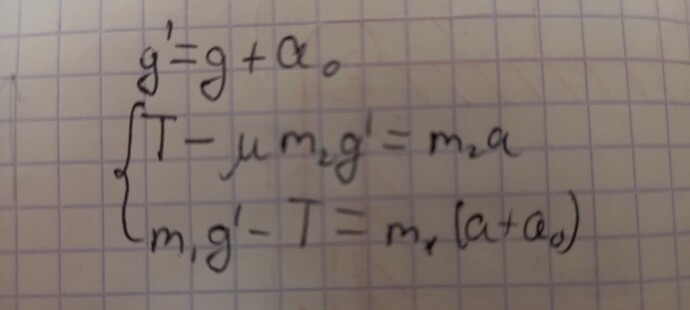 g' = g + a₀
T - μ m₂g' = m₂a
m₁g' - T = m₁(a+a₀)